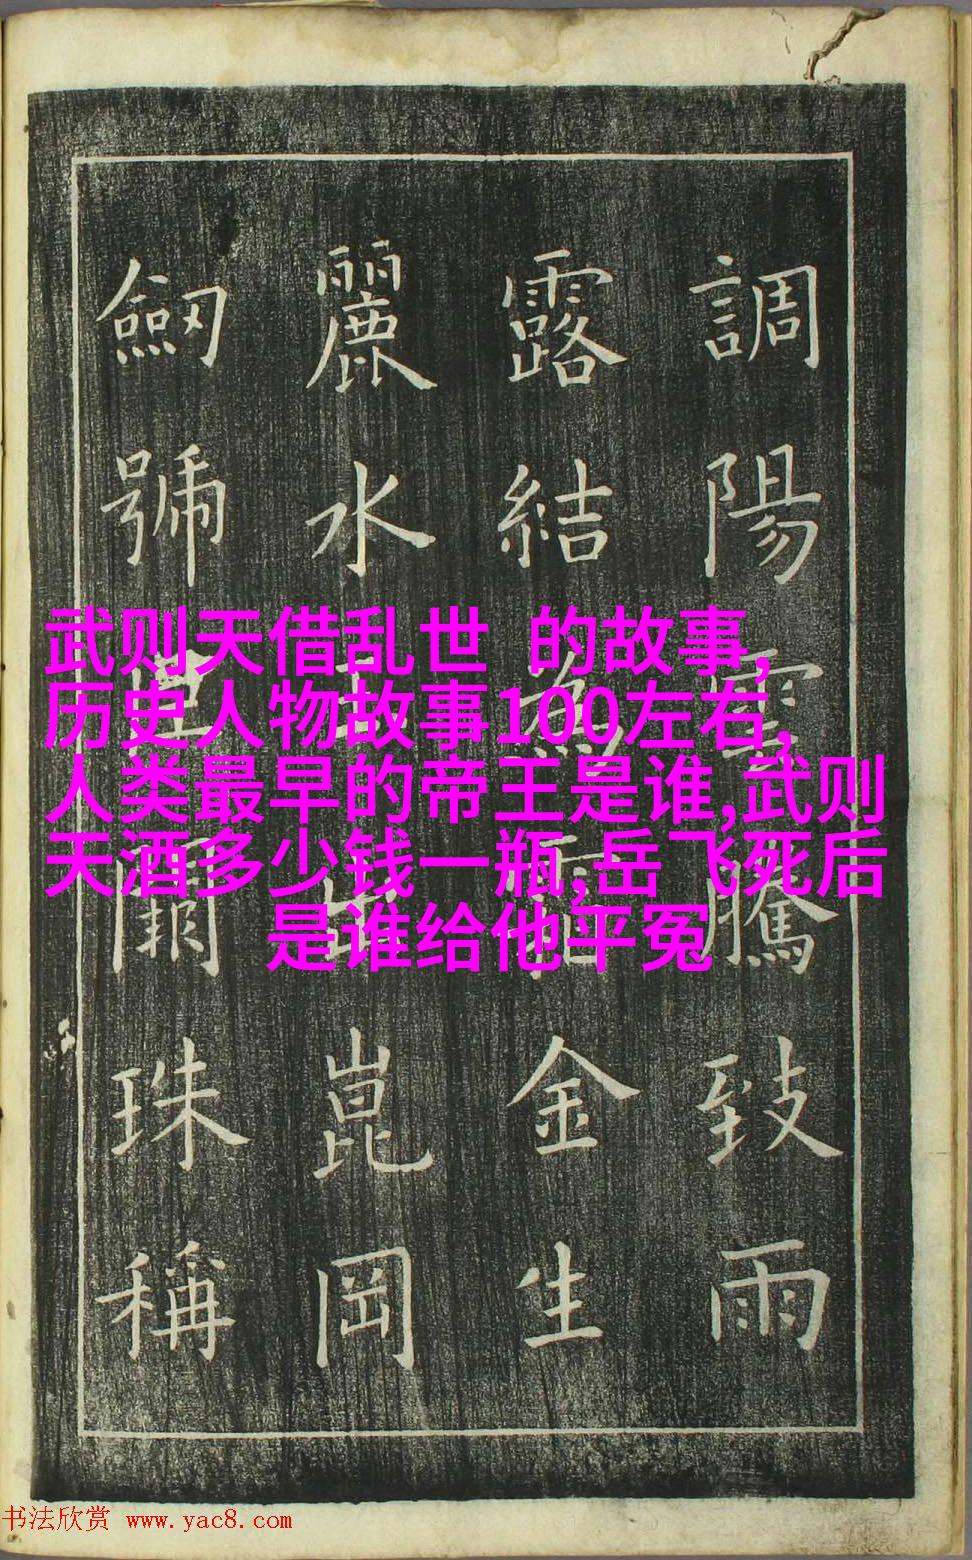 調陽雲騰致雨
露結為霜金生
麗水玉出崑岡
劒號巨闕珠稱
武则天借乱世 的故事,
历史人物故事100左右,
人类最早的帝王是谁,武则
天酒多少钱一瓶,岳飞死后
是谁给他平冤
书法欣赏 www.yac8.com